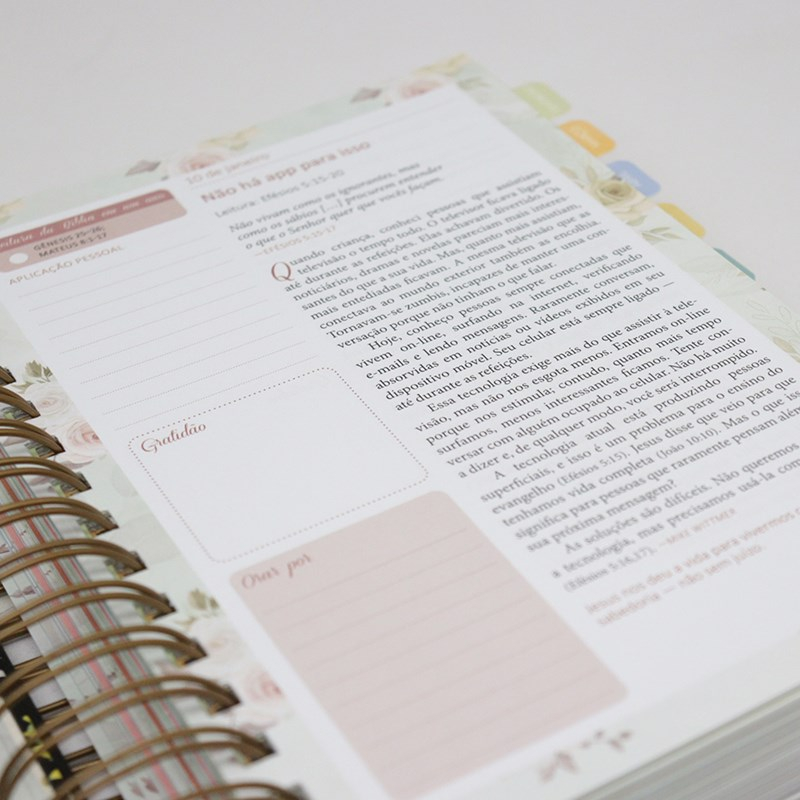 10 de janeiro
Não há app para isso
Leitura: Efésios 5:15-20
Não vivam como os ignorantes, mas
como os sábios [...] procurem entender
o que o Senhor quer que vocês façam.
—EFÉSIOS 5:15-17
Quando criança, conheci pessoas que assistiam
televisão o tempo todo. O televisor ficava ligado
até durante as refeições. Elas acharam divertido. Os
noticiários, dramas e novelas pareciam mais interes-
santes do que a sua vida. Mas, quanto mais assistiam,
mais entediadas ficavam. A mesma televisão que as
conectava ao mundo exterior também as escolhia.
Tornavam-se zumbis, incapazes de manter uma con-
versação porque não tinham o que falar.
Hoje, conheço pessoas sempre conectadas que
vivem on-line, surfando na internet, verificando
e-mails e lendo mensagens. Raramente conversam,
absorvidas em notícias ou vídeos exibidos em seu
dispositivo móvel. Seu celular está sempre ligado —
até durante as refeições.
Essa tecnologia exige mais do que assistir à tele-
visão, mas não nos esgota menos. Entramos on-line
porque nos estimula; contudo, quanto mais tempo
surfamos, menos interessantes ficamos. Tente con-
versar com alguém ocupado ao celular. Não há muito
a dizer e, de qualquer modo, você será interrompido,
A tecnologia atual está produzindo pessoas
superficiais, e isso é um problema para o ensino do
evangelho (Efésios 5:15). Jesus disse que veio para que
tenhamos vida completa (João 10:10). Mas o que isso
significa para pessoas que raramente pensam além
sua próxima mensagem?
As soluções são difíceis. Não queremos
a tecnologia, mas precisamos usá-la com
(Efésios 5:16,17). —MIKE WITTMER
Jesus nos deu a vida para vivermos
sabedoria — não sem juízo.
leitura da Bíblia em um ano
GÊNESIS 25–26;
MATEUS 8:1-17
APLICAÇÃO PESSOAL
Gratidão
Orar por